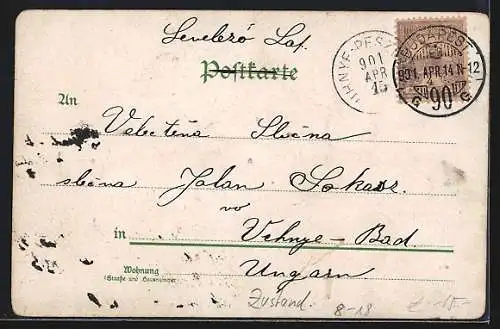 Levelező Lap.
Postkarte
VIHNYE-PESZ
901
APR
15
BUDAPEST
901. APR. 14 N-12
G 90 G
An
Velectěna Slečna
slečna Jolan Sokasz
vo
in Vihnye-Bad
Wohnung
(Straße und Hausnummer)
Ungarn
Zustand.
8-18